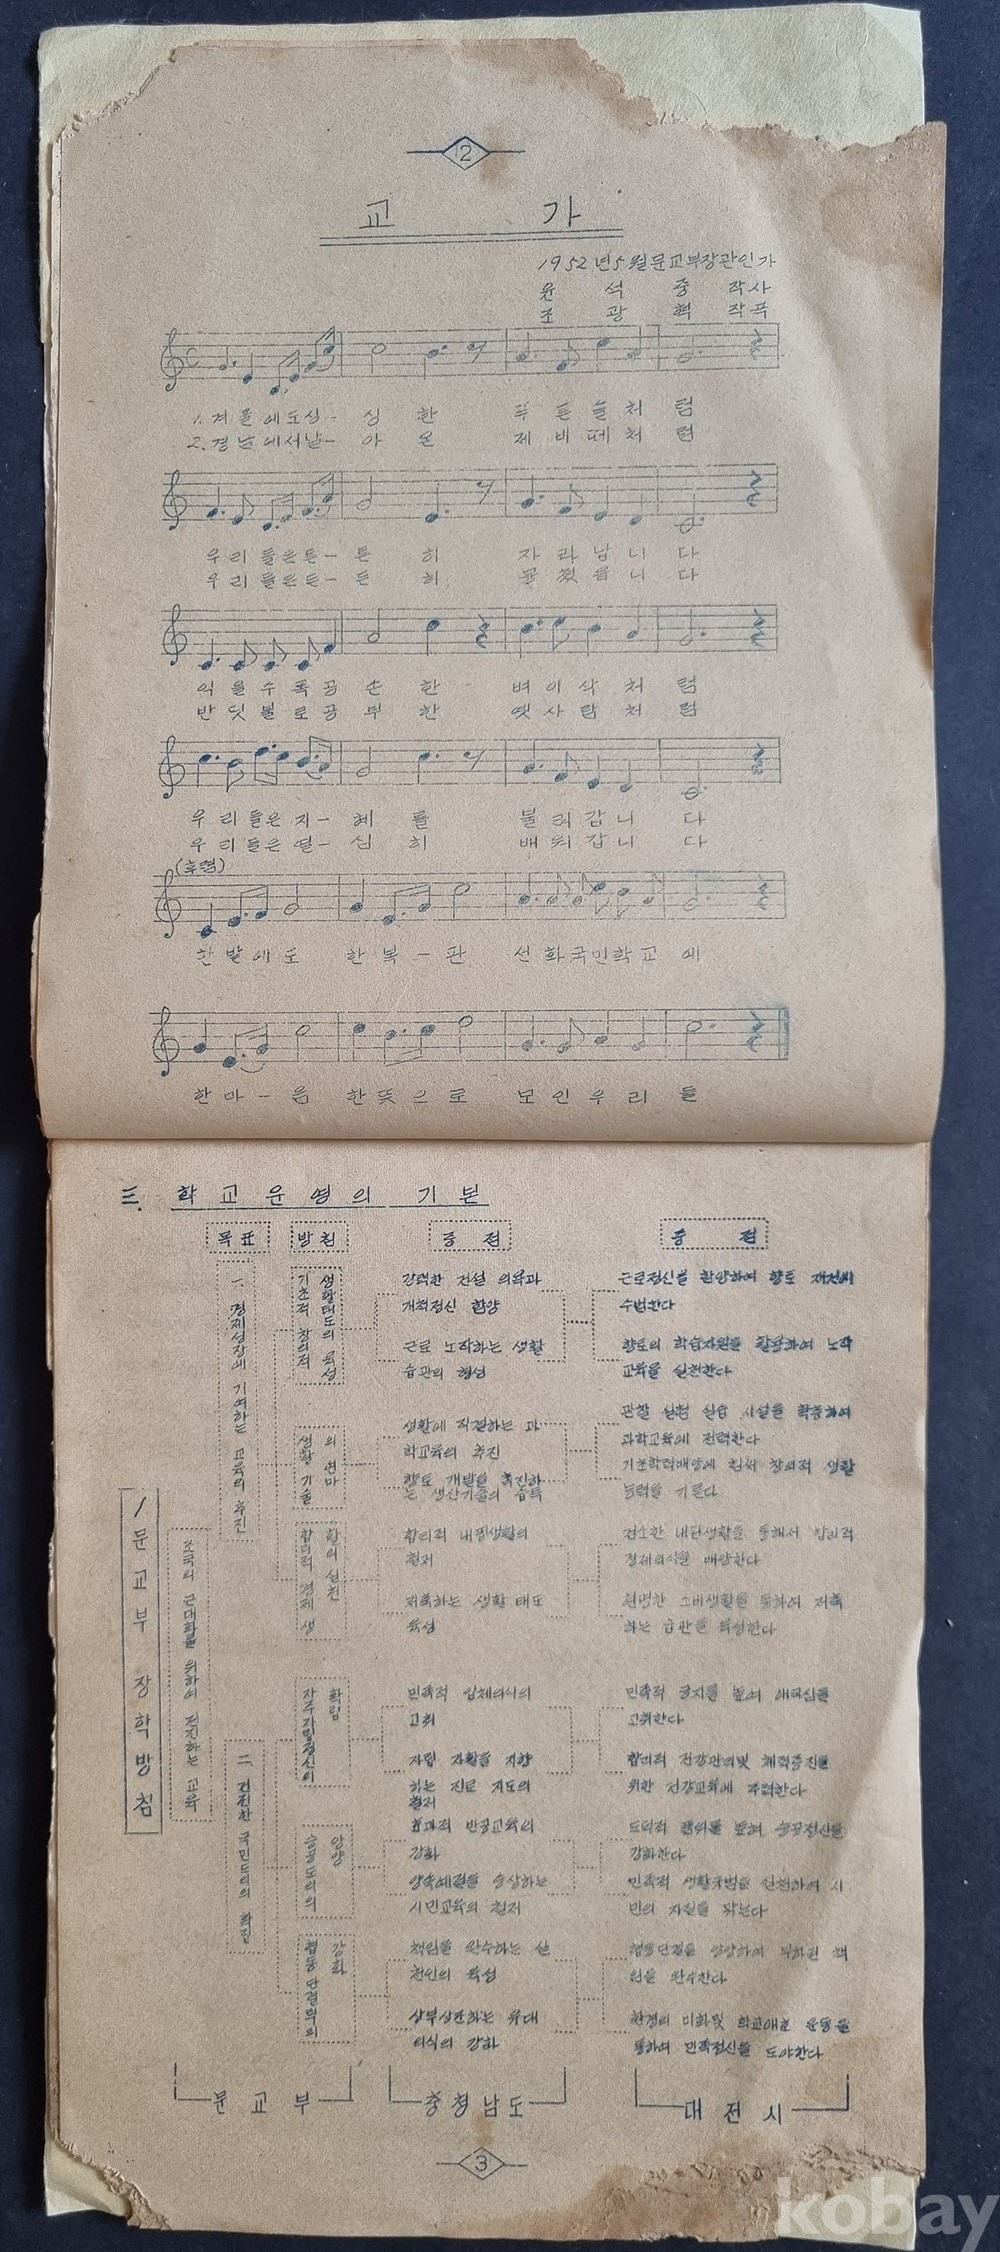 2
교 가
1952년5월문교부장관인가
윤 석 중 작사
조 광 혁 작곡
1. 겨울에도싱- 싱 한 푸 른 솔 처 럼
2. 강남에서날- 아 온 제 비 떼 처 럼
우 리 들은튼- 튼 히 자 라 납 니 다
우 리 들은든- 든 히 뭉 쳤 읍 니 다
익 을 수 록 공 손 한 벼 이 삭 처 럼
반 딧 불 로 공 부 한 옛 사 람 처 럼
우 리 들은 지- 혜 를 불 려 갑 니 다
우 리 들은 열- 심 히 배 워 갑 니 다
(후렴)
한 밭 에 도 한 복 - 판 선 화 국 민 학 교 에
한 마 - 음 한 뜻 으 로 모 인 우 리 들
三. 학 교 운 영 의 기 본
목 표 방 침 중 점 중 점
1 문 교 부 장 학 방 침
조국의 근대화를 위하여 전진하는 교육
一. 경제성장에 기여하는 교육의 추진
기초적 창의적
생활태도의 육성
강력한 건설 의욕과
개척정신 함양
근로 노작하는 생활
습관의 형성
근로정신을 함양하여 향토 재건에
수범한다
향토의 학습자원을 활용하여 노작
교육을 실천한다
생활 기술
의 연마
생활에 직결하는 과
학교육의 추진
향토 개발을 촉진하
는 생산기술의 습득
관찰 실험 실습 시설을 확충하여
과학교육에 전력한다
기초학력배양에 힘써 창의적 생활
능력을 기른다
합리적 경제 생
활의 실천
합리적 내핍생활의
철저
저축하는 생활 태도
육성
검소한 내핍생활을 통해서 합리적
경제의식을 배양한다
현명한 소비생활을 통하여 저축
하는 습관을 육성한다
二 건전한 국민도의의 확진
자주자립정신의
확립
민족적 주체의식의
고취
자립 자활을 지향
하는 진로 지도의
철저
민족적 긍지를 높여 애국심을
고취한다
합리적 건강관리및 체력증진을
위한 건강교육에 주력한다
승공도의의
앙양
효과적 반공교육의
강화
양속예절을 숭상하는
시민교육의 철저
도의적 행위를 높여 승공정신을
강화한다
민족적 생활규범을 실천하여 시
민의 자질을 닦는다
협동단결력의
강화
책임을 완수하는 실
천인의 육성
상부상조하는 유대
의식의 강화
협동단결을 앙양하여 부하된 책
임을 완수한다
환경의 미화및 학교애호 운동을
통하여 민족정신을 도야한다
문 교 부 충 청 남 도 대 전 시
3
kobay